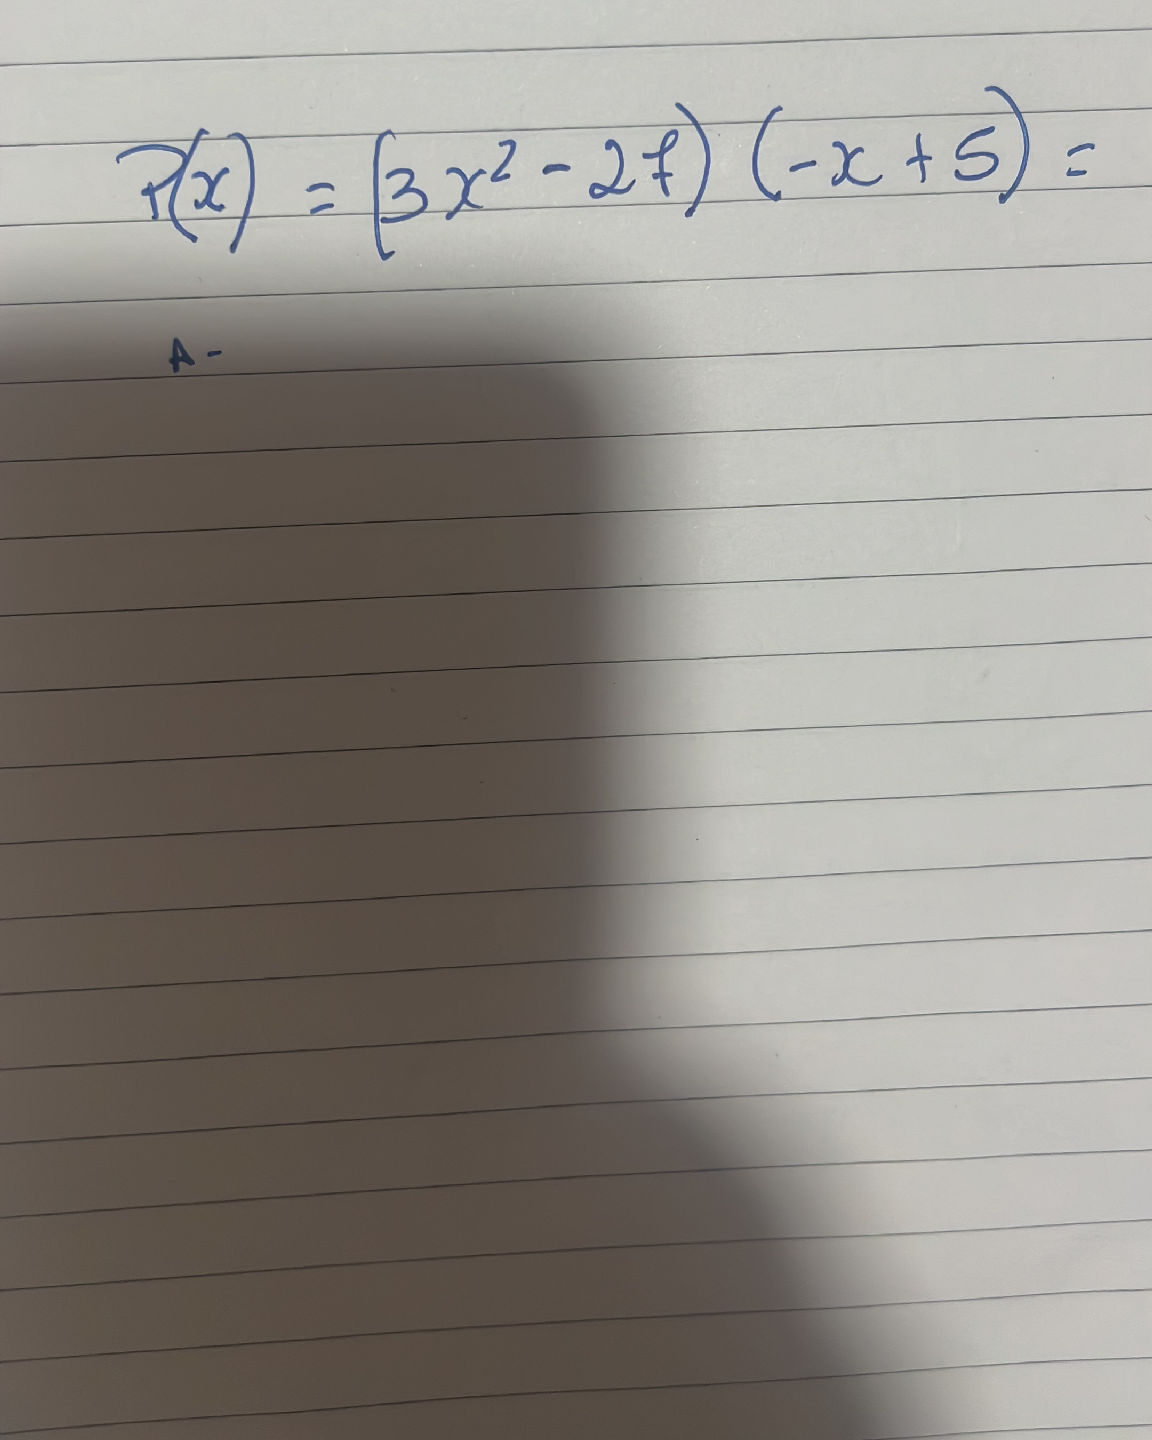 P(x) = (3x² - 27) (-x + 5) =
A -